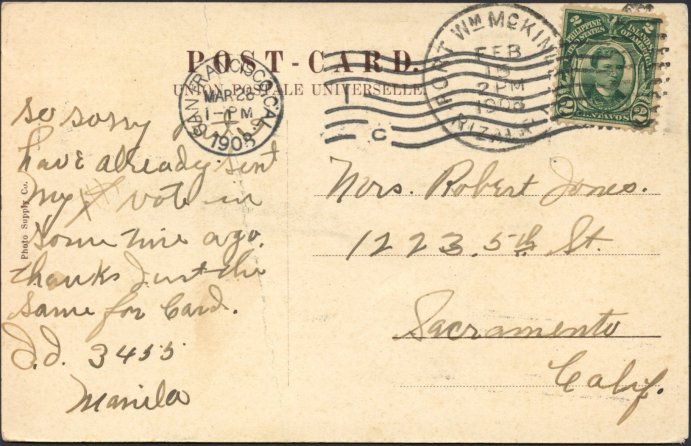 POST-CARD.
UNION POSTALE UNIVERSELLE.
SAN FRANCISCO, CAL.
MAR 26
1-PM
1908
FORT WM McKINLEY
FEB
2 PM
1908
RIZAL
C
2 PHILIPPINE ISLANDS 2
UNITED STATES OF AMERICA
2 CENTAVOS 2
so sorry
have already sent
my vote in
some time ago.
thanks Just the
same for Card.
3455
Manila
Mrs. Robert Jones.
1223. 5th St.
Sacramento
Calif.
Photo Supply Co.